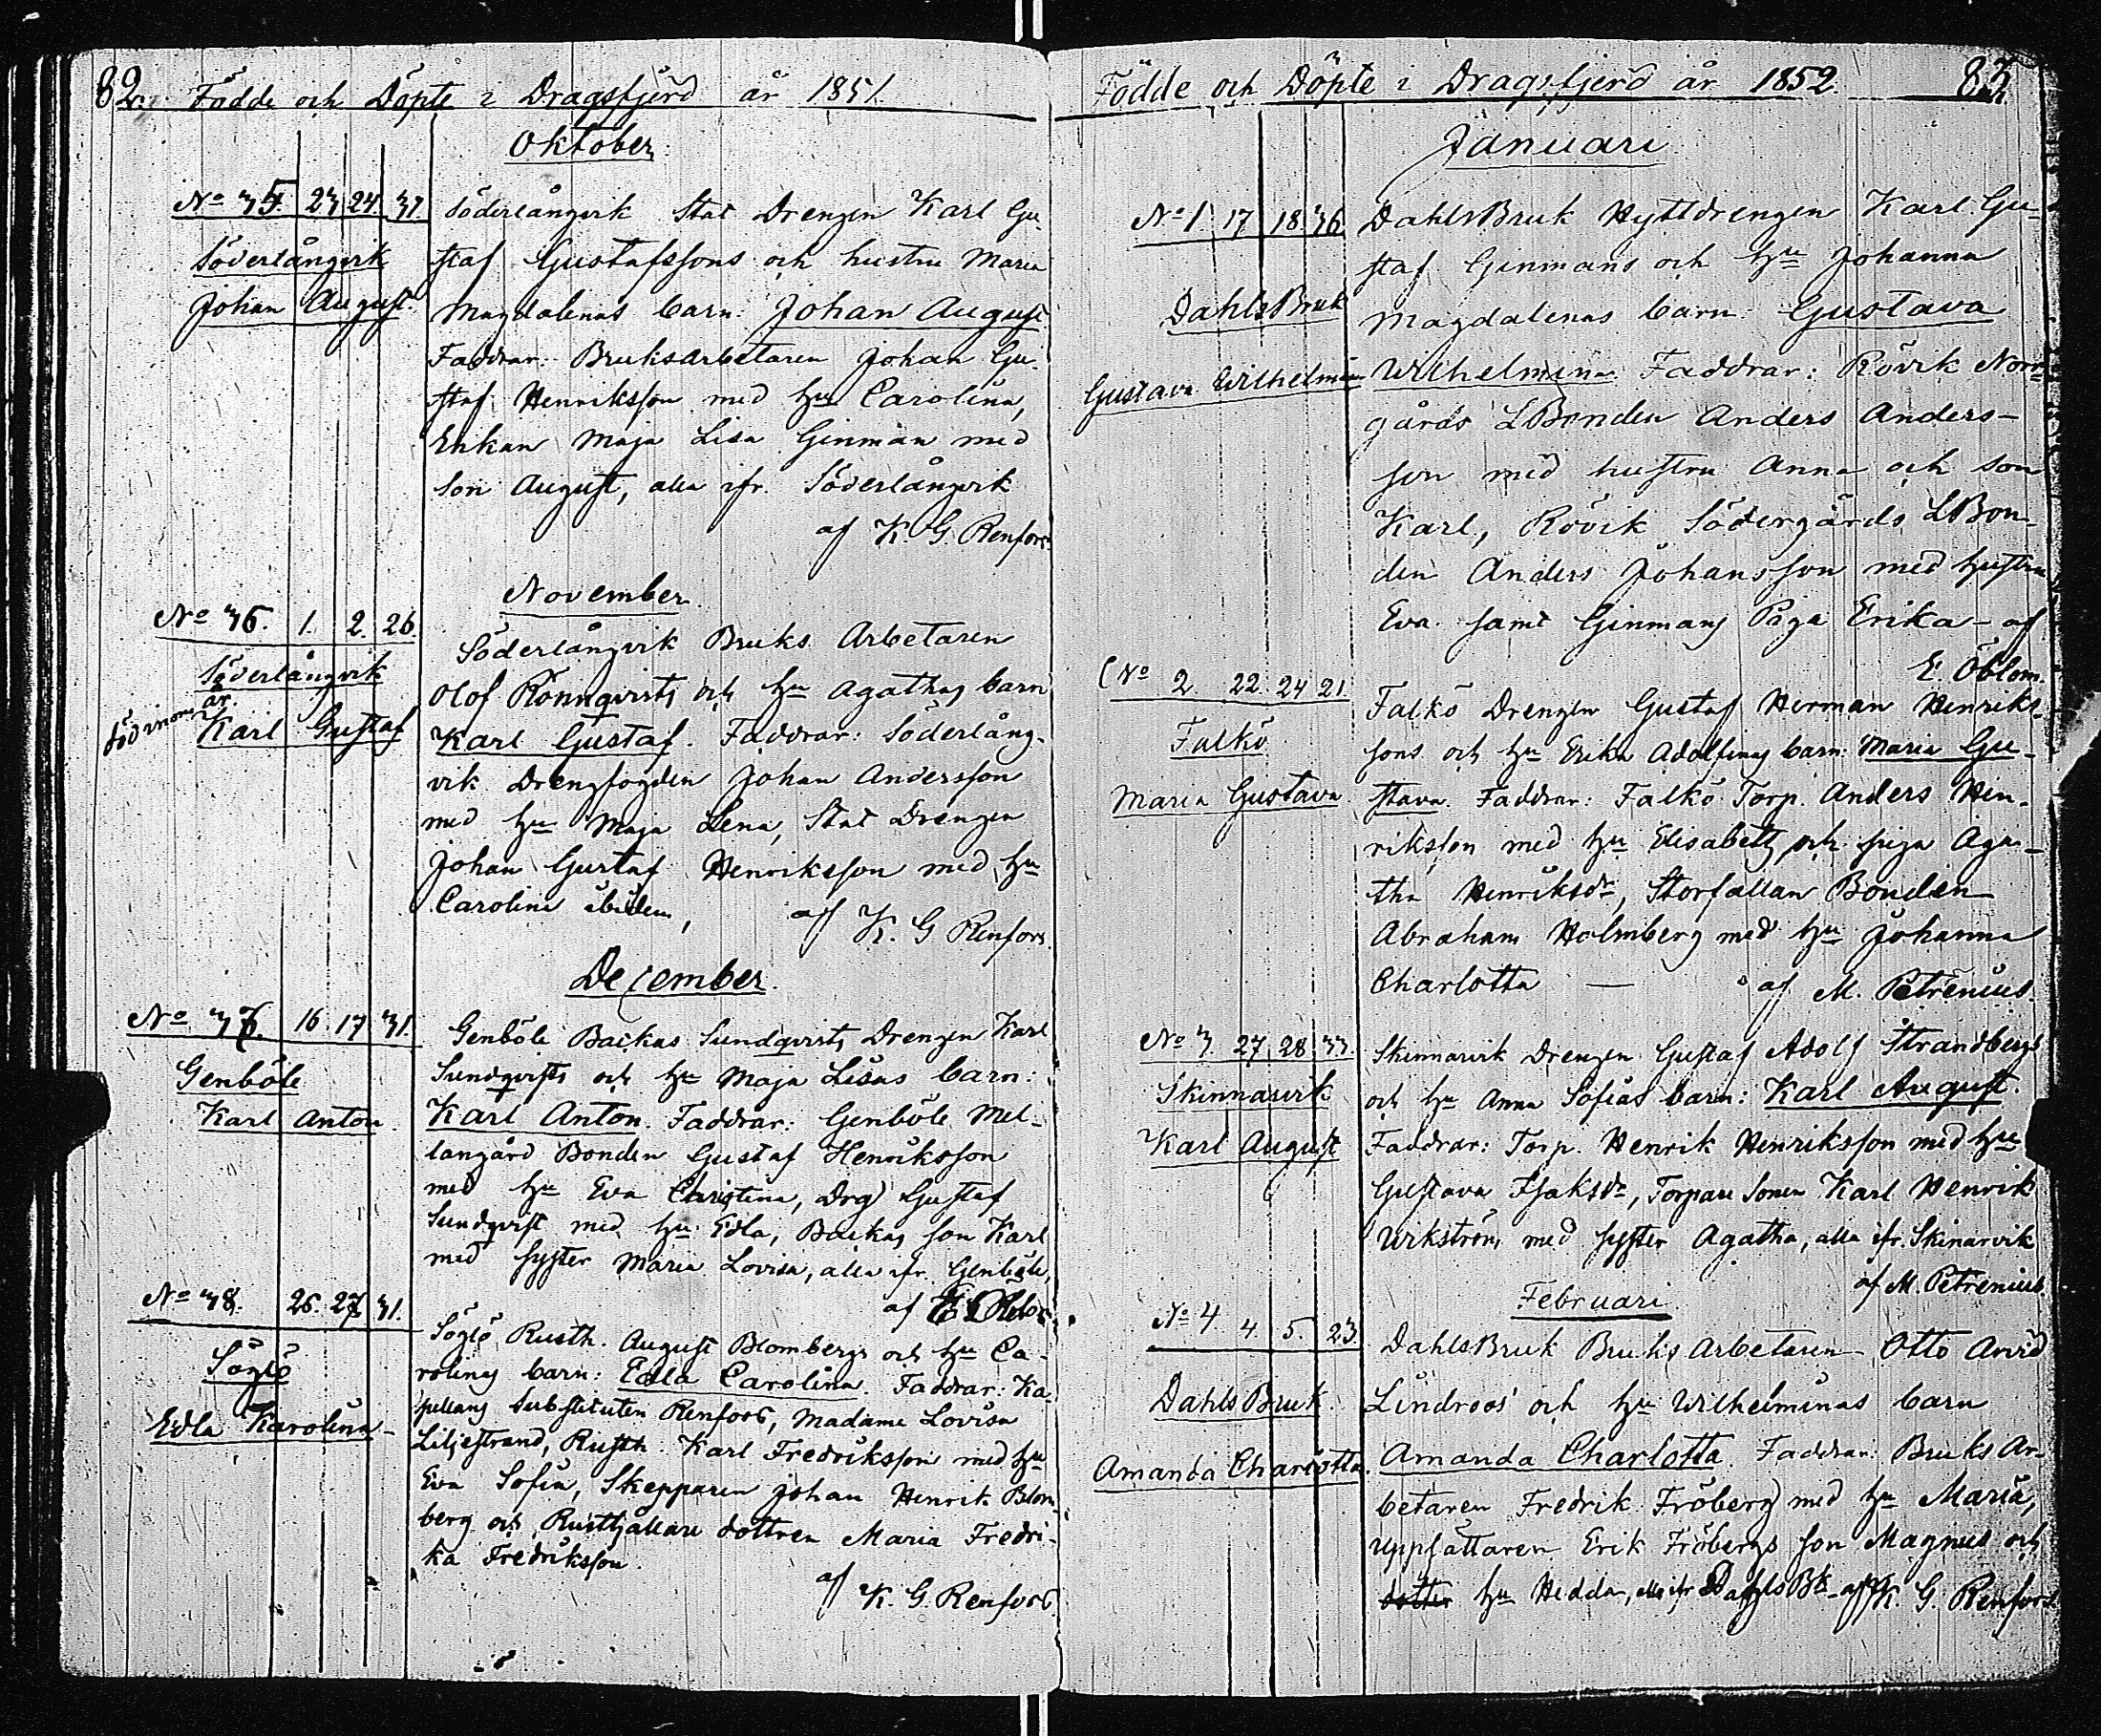 82. Födde och Döpte i Dragsfjerd år 1851.
Oktober
No 35. 23 24. 31.
Söderlångvik
Johan August.
Söderlångvik Stat Drengen Karl Gu-
staf Gustafssons och hustru Maria
Magdalenas barn: Johan August
Faddrar: Bruksarbetaren Johan Gu-
staf Henriksson med hu Carolina,
Enkan Maja Lisa Ginman med
son August, alla ifr. Söderlångvik
af K. G. Renfors.
November
No 36. 1. 2. 26.
Söderlångvik
död inom år.
Karl Gustaf
Söderlångvik Bruks Arbetaren
Olof Rönnqvists och hu Agathas barn
Karl Gustaf. Faddrar: Söderlång-
vik Drengfogden Johan Andersson
med hu Maja Lena, Stat Drengen
Johan Gustaf Henriksson med hu
Carolina ibidem, af K. G Renfors.
December.
No 37. 16. 17. 31.
Genböle
Karl Anton.
Genböle Backas Sundqvists Drengen Karl
Sundqvists och hu Maja Lisas barn:
Karl Anton. Faddrar: Genböle Mel-
langård Bonden Gustaf Henriksson
med hu Eva Christina, Drg Gustaf
Sundqvist med hu Edla, Backas son Karl
med syster Maria Lovisa, alla ifr. Genböle,
af
No 38. 26. 27. 31.
Söglö
Edla Karolina-
Söglö Rusth. August Blombergs och hu Ca-
rolinas barn: Edla Carolina. Faddrar: Ka-
pellans Substituten Renfors, Madame Lovisa
Liljestrand, Rusth. Karl Fredriksson med hu
Eva Sofia, Skepparen Johan Henrik Blom-
berg och Rusthållare dottren Maria Fredri-
ka Fredriksson.
af K. G. Renfors.
Födde och Döpte i Dragsfjerd år 1852. 83
Januari
No 1. 17 18. 36
DahlsBruk
Gustava Wilhelmina
DahlsBruk Hyttdrengen Karl Gu-
staf Ginmans och hu Johanna
Magdalenas barn: Gustava
Wilhelmina. Faddrar: Rövik Norr-
gårds LBonden Anders Anders-
son med hustru Anna och son
Karl, Rövik Södergårds LBon-
den Anders Johansson med hustru
Eva. samt Ginmans Piga Erika - af
E. Öblom.
(No 2 22. 24 21.
Falkö
Maria Gustava.
Falkö Drengen Gustaf Herman Henriks-
sons och hu Erika Adolfinas barn: Maria Gu-
stava. Faddrar: Falkö Torp. Anders Hen-
riksson med hu Elisabeth och piga Aga-
tha Henriksdr, Storfallan Bonden
Abraham Holmberg med hu Johanna
Charlotta — af M. Petrenius.
No 3. 27. 28. 33.
Skinnarvik
Karl August
Skinnarvik Drengen Gustaf Adolf Strandbergs
och hu Anna Sofias barn: Karl August.
Faddrar: Torp. Henrik Henriksson med hu
Gustava Isaksdr, Torpare Sonen Karl Henrik
Wikström med syster Agatha, alla ifr. Skinarvik
af M. Petrenius
Februari
No 4. 4. 5. 23.
DahlsBruk
Amanda Charlotta.
DahlsBruk Bruks Arbetaren Otto Arvid
Lindroos och hu Wilhelminas barn
Amanda Charlotta. Faddrar: Bruks Ar-
betaren Fredrik Fröberg med hu Maria,
Uppsättaren Erik Fröbergs son Magnus och
dotter hu Hedda, alla ifr DahlsBk - af K. G. Renfors.